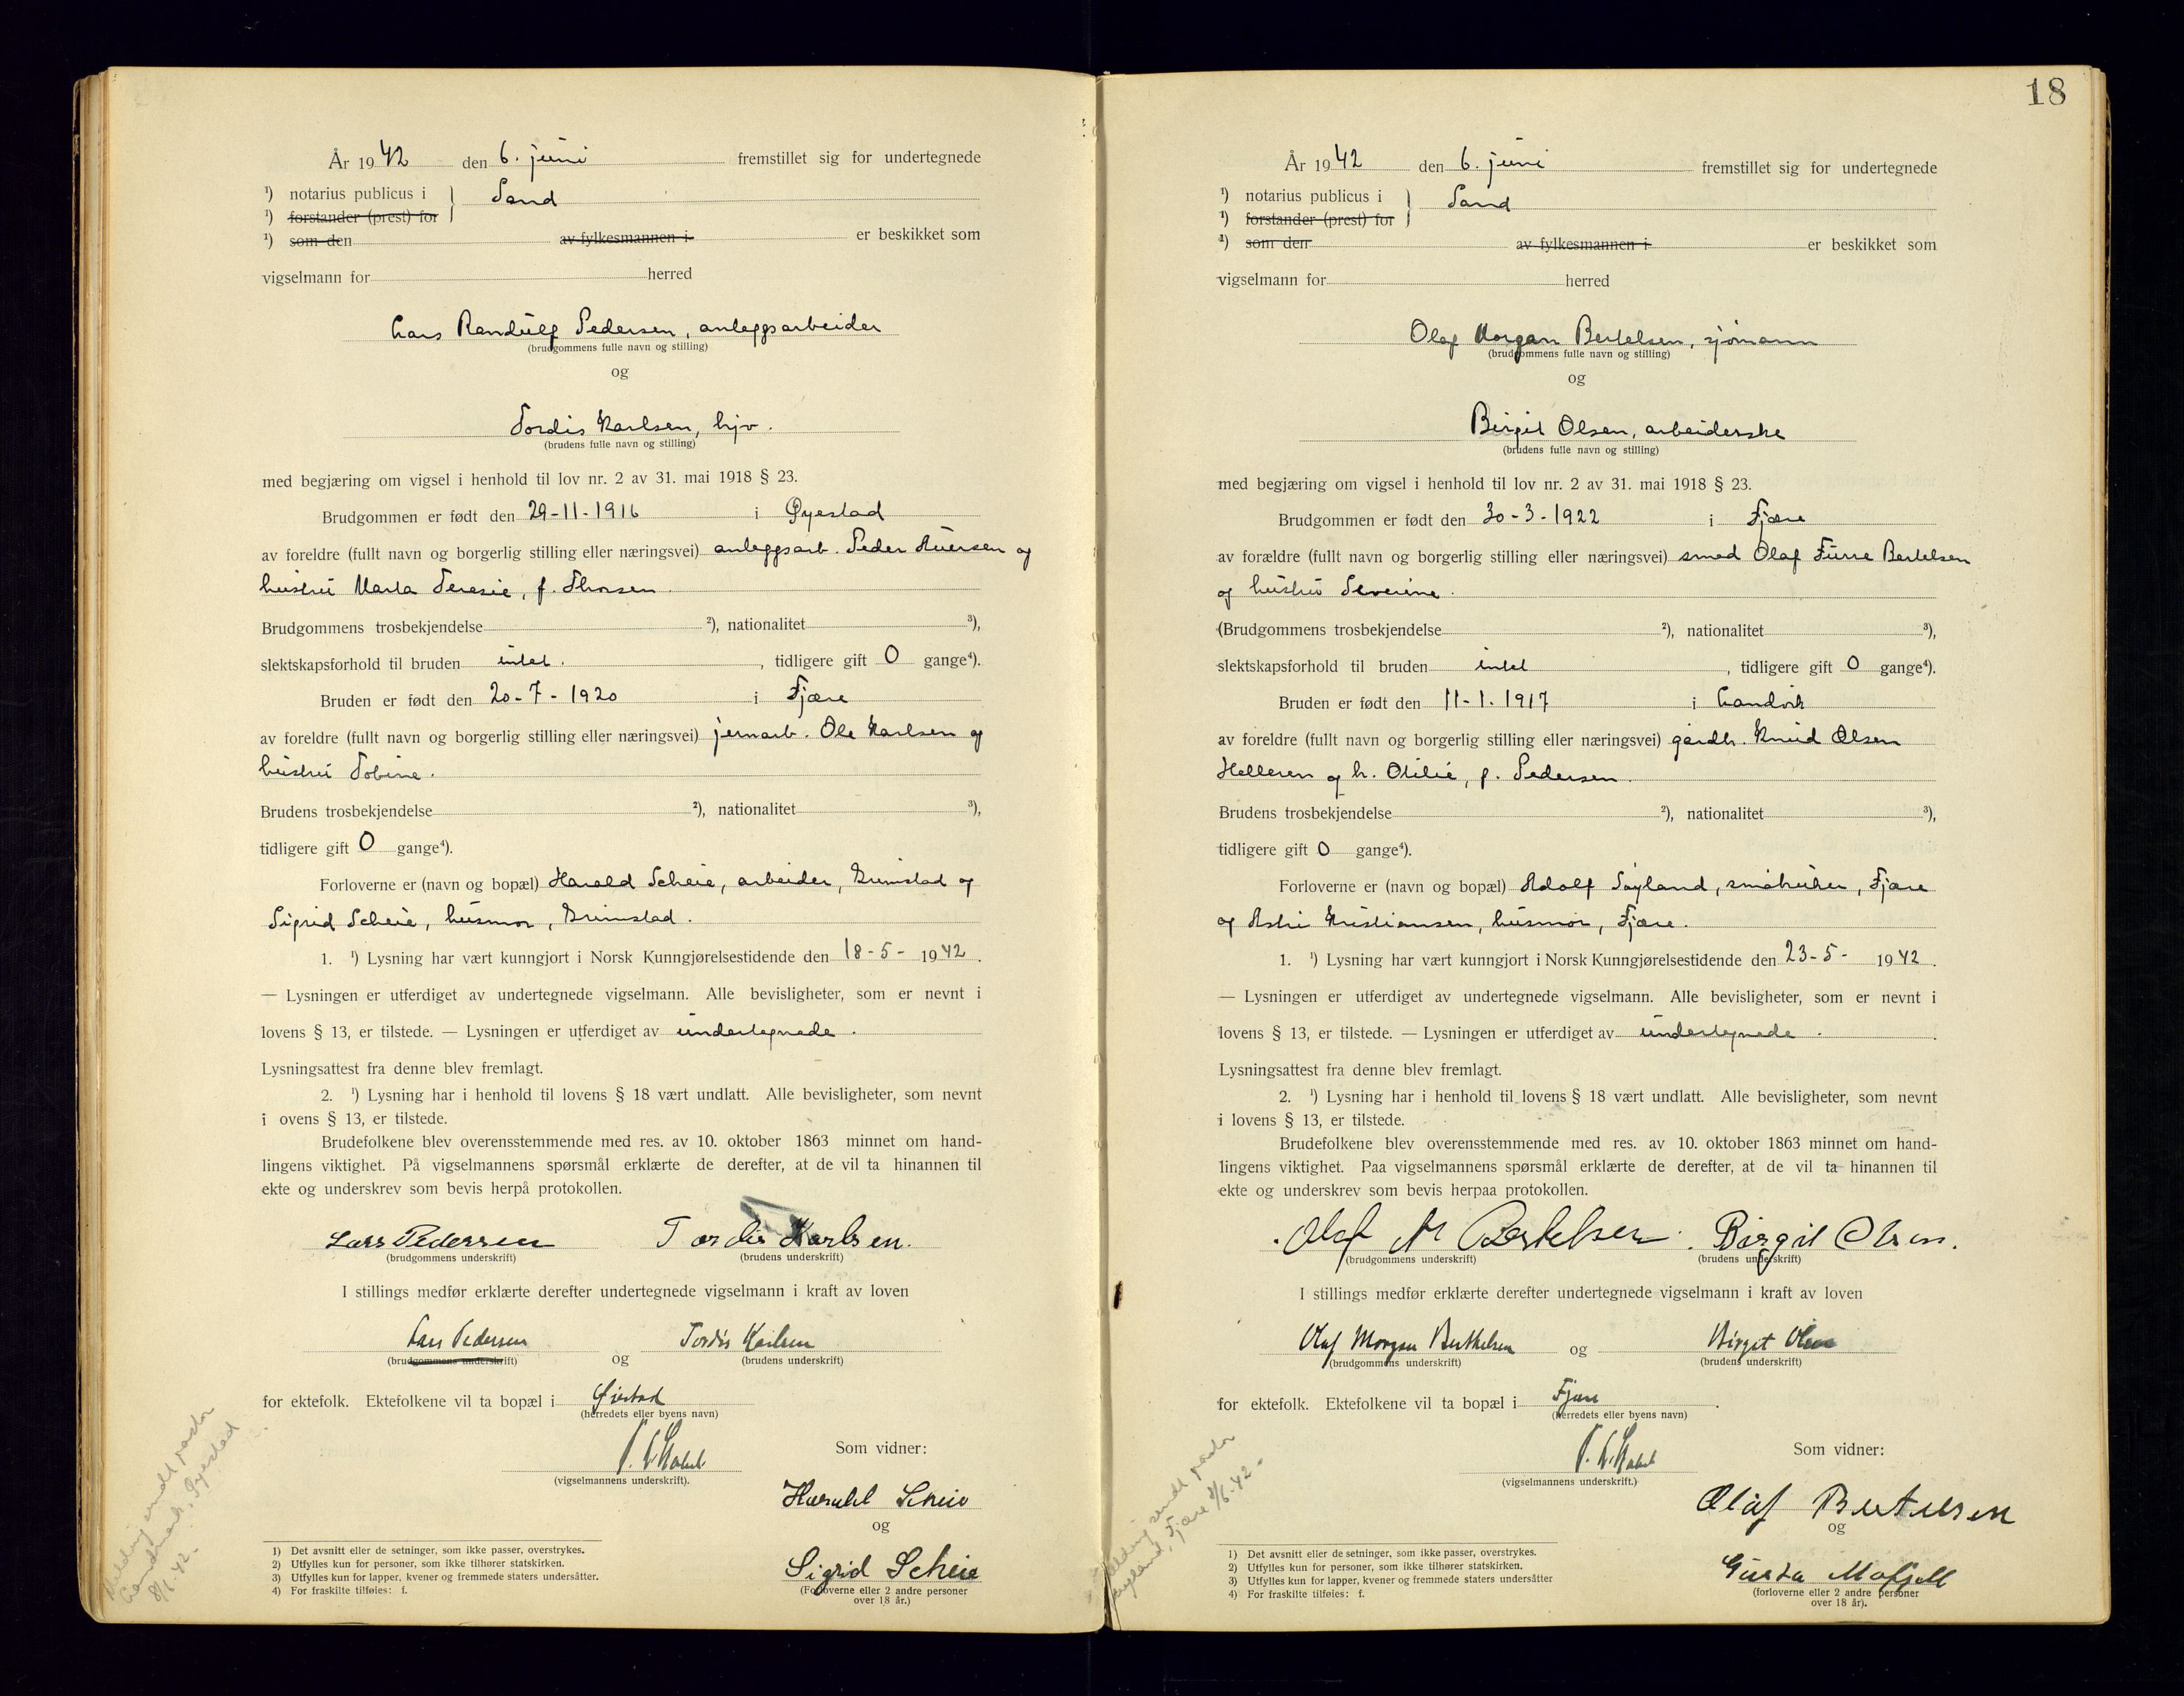 År 1942 den 6. juni fremstillet sig for undertegnede
¹) notarius publicus i } Sand
¹) forstander (prest) for
¹) som den av fylkesmannen i er beskikket som
vigselmann for herred
Lars Randulf Pedersen, anleggsarbeider
(brudgommens fulle navn og stilling)
og
Tordis Karlsen, hjv.
(brudens fulle navn og stilling)
med begjæring om vigsel i henhold til lov nr. 2 av 31. mai 1918 § 23.
Brudgommen er født den 29-11-1916 i Øyestad
av foreldre (fullt navn og borgerlig stilling eller næringsvei) anleggsarb. Peder Auersen og
hustru Marta Teresie, f. Thorsen.
Brudgommens trosbekjendelse ²), nationalitet ³),
slektskapsforhold til bruden intet. , tidligere gift 0 gange⁴).
Bruden er født den 20-7-1920 i Fjære
av foreldre (fullt navn og borgerlig stilling eller næringsvei) jernarb. Ole Karlsen og
hustru Tobine.
Brudens trosbekjendelse ²), nationalitet ³),
tidligere gift 0 gange⁴).
Forloverne er (navn og bopæl) Harald Scheie, arbeider, Grimstad og
Sigrid Scheie, husmor, Grimstad.
1. ¹) Lysning har vært kunngjort i Norsk Kunngjørelsestidende den 18-5- 1942.
— Lysningen er utferdiget av undertegnede vigselmann. Alle bevisligheter, som er nevnt i
lovens § 13, er tilstede. — Lysningen er utferdiget av undertegnede.
Lysningsattest fra denne blev fremlagt.
2. ¹) Lysning har i henhold til lovens § 18 vært undlatt. Alle bevisligheter, som nevnt
i ovens § 13, er tilstede.
Brudefolkene blev overensstemmende med res. av 10. oktober 1863 minnet om hand-
lingens viktighet. På vigselmannens spørsmål erklærte de derefter, at de vil ta hinannen til
ekte og underskrev som bevis herpå protokollen.
Lars Pedersen Tordis Karlsen.
(brudgommens underskrift) (brudens underskrift)
I stillings medfør erklærte derefter undertegnede vigselmann i kraft av loven
Lars Pedersen og Tordis Karlsen
(brudgommens underskrift) (brudens underskrift)
for ektefolk. Ektefolkene vil ta bopæl i Øiestad
(herredets eller byens navn)
Som vidner:
(vigselmannens underskrift).
Harald Scheie
og
Sigrid Scheie
(Forloverne eller 2 andre personer
over 18 år.)
1) Det avsnitt eller de setninger, som ikke passer, overstrykes.
2) Utfylles kun for personer, som ikke tilhører statskirken.
3) Utfylles kun for lapper, kvener og fremmede staters undersåtter.
4) For fraskilte tilføies: f.
Melding sendt pastor
Landmark, Øyestad
8/6-42.
18
År 1942 den 6. juni fremstillet sig for undertegnede
¹) notarius publicus i } Sand
¹) forstander (prest) for
¹) som den av fylkesmannen i er beskikket som
vigselmann for herred
Olaf Morgan Bertelsen, sjømann
(brudgommens fulle navn og stilling)
og
Birgit Olsen, arbeiderske
(brudens fulle navn og stilling)
med begjæring om vigsel i henhold til lov nr. 2 av 31. mai 1918 § 23.
Brudgommen er født den 30-3-1922 i Fjære
av forældre (fullt navn og borgerlig stilling eller næringsvei) smed Olaf Furre Bertelsen
og hustru Severine.
(Brudgommens trosbekjendelse ²), nationalitet ³),
slektskapsforhold til bruden intet , tidligere gift 0 gange⁴).
Bruden er født den 11-1.1917 i Landvik
av foreldre (fullt navn og borgerlig stilling eller næringsvei) gårdbr. Knud Olsen
Helleren og h. Otilie, f. Pedersen.
Brudens trosbekjendelse ²), nationalitet ³),
tidligere gift 0 gange⁴).
Forloverne er (navn og bopæl) Adolf Søyland, småbruker, Fjære
og Astri Kristiansen, husmor, Fjære.
1. ¹) Lysning har vært kunngjort i Norsk Kunngjørelsestidende den 23-5- 1942.
— Lysningen er utferdiget av undertegnede vigselmann. Alle bevisligheter, som er nevnt i
lovens § 13, er tilstede. — Lysningen er utferdiget av undertegnede.
Lysningsattest fra denne blev fremlagt.
2. ¹) Lysning har i henhold til lovens § 18 vært undlatt. Alle bevisligheter, som nevnt
i lovens § 13, er tilstede.
Brudefolkene blev overensstemmende med res. av 10. oktober 1863 minnet om hand-
lingens viktighet. Paa vigselmannens spørsmål erklærte de derefter, at de vil ta hinannen til
ekte og underskrev som bevis herpaa protokollen.
Olaf M Bertelsen. Birgit Olsen.
(brudgommens underskrift) (brudens underskrift)
I stillings medfør erklærte derefter undertegnede vigselmann i kraft av loven
Olaf Morgan Berthelsen og Birgit Olsen
(brudgommens underskrift) (brudens underskrift)
for ektefolk. Ektefolkene vil ta bopæl i Fjære.
(herredets eller byens navn)
Som vidner:
(vigselmannens underskrift.)
Olaf Bertelsen
og
Gusta Mofjell
(forloverne eller 2 andre personer
over 18 år).
1) Det avsnitt eller de setninger, som ikke passer, overstrykes.
2) Utfylles kun for personer, som ikke tilhører statskirken.
3) Utfylles kun for lapper, kvener og fremmede staters undersåtter
4) For fraskilte tilføies: f.
Melding sendt pastor
Fjære 8/6-42.